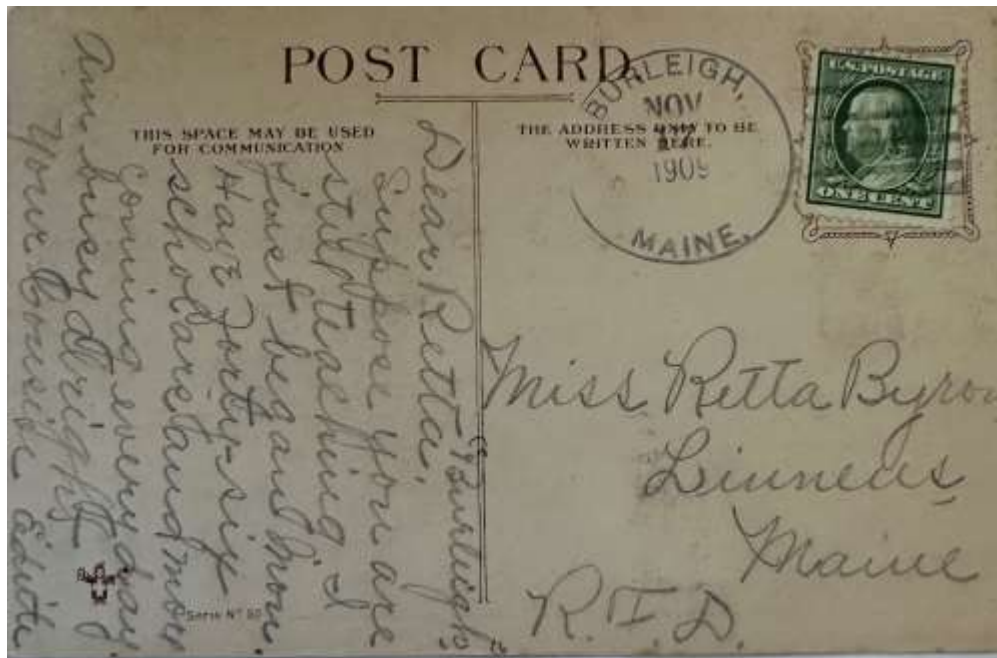 POST CARD
THIS SPACE MAY BE USED
FOR COMMUNICATION
THE ADDRESS ONLY TO BE
WRITTEN HERE.
BURLEIGH,
NOV
1909
MAINE.
U.S. POSTAGE
ONE CENT
"Burleigh"
Dear Retta,
Suppose you are
still teaching I
just began Mon.
Have forty-six
scholars and more
coming every day.
Am busy alright
Your Cousin Edith
Miss Retta Byron
Linneus
Maine
R.F.D.
Serie No 80